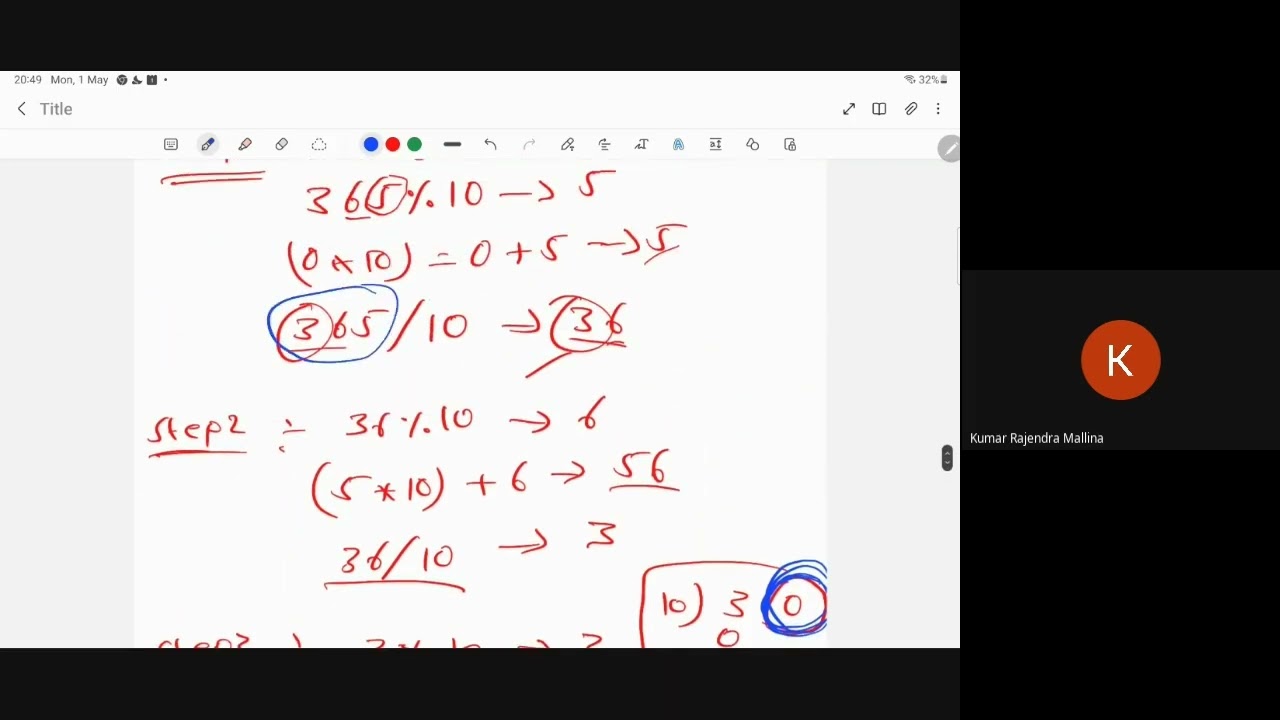 20:49 Mon, 1 May
32%
Title
365 % 10 → 5
(0 * 10) = 0 + 5 → 5
365 / 10 → 36
step2 : 36 % 10 → 6
(5 * 10) + 6 → 56
36 / 10 → 3
10) 3 0
0
K
Kumar Rajendra Mallina